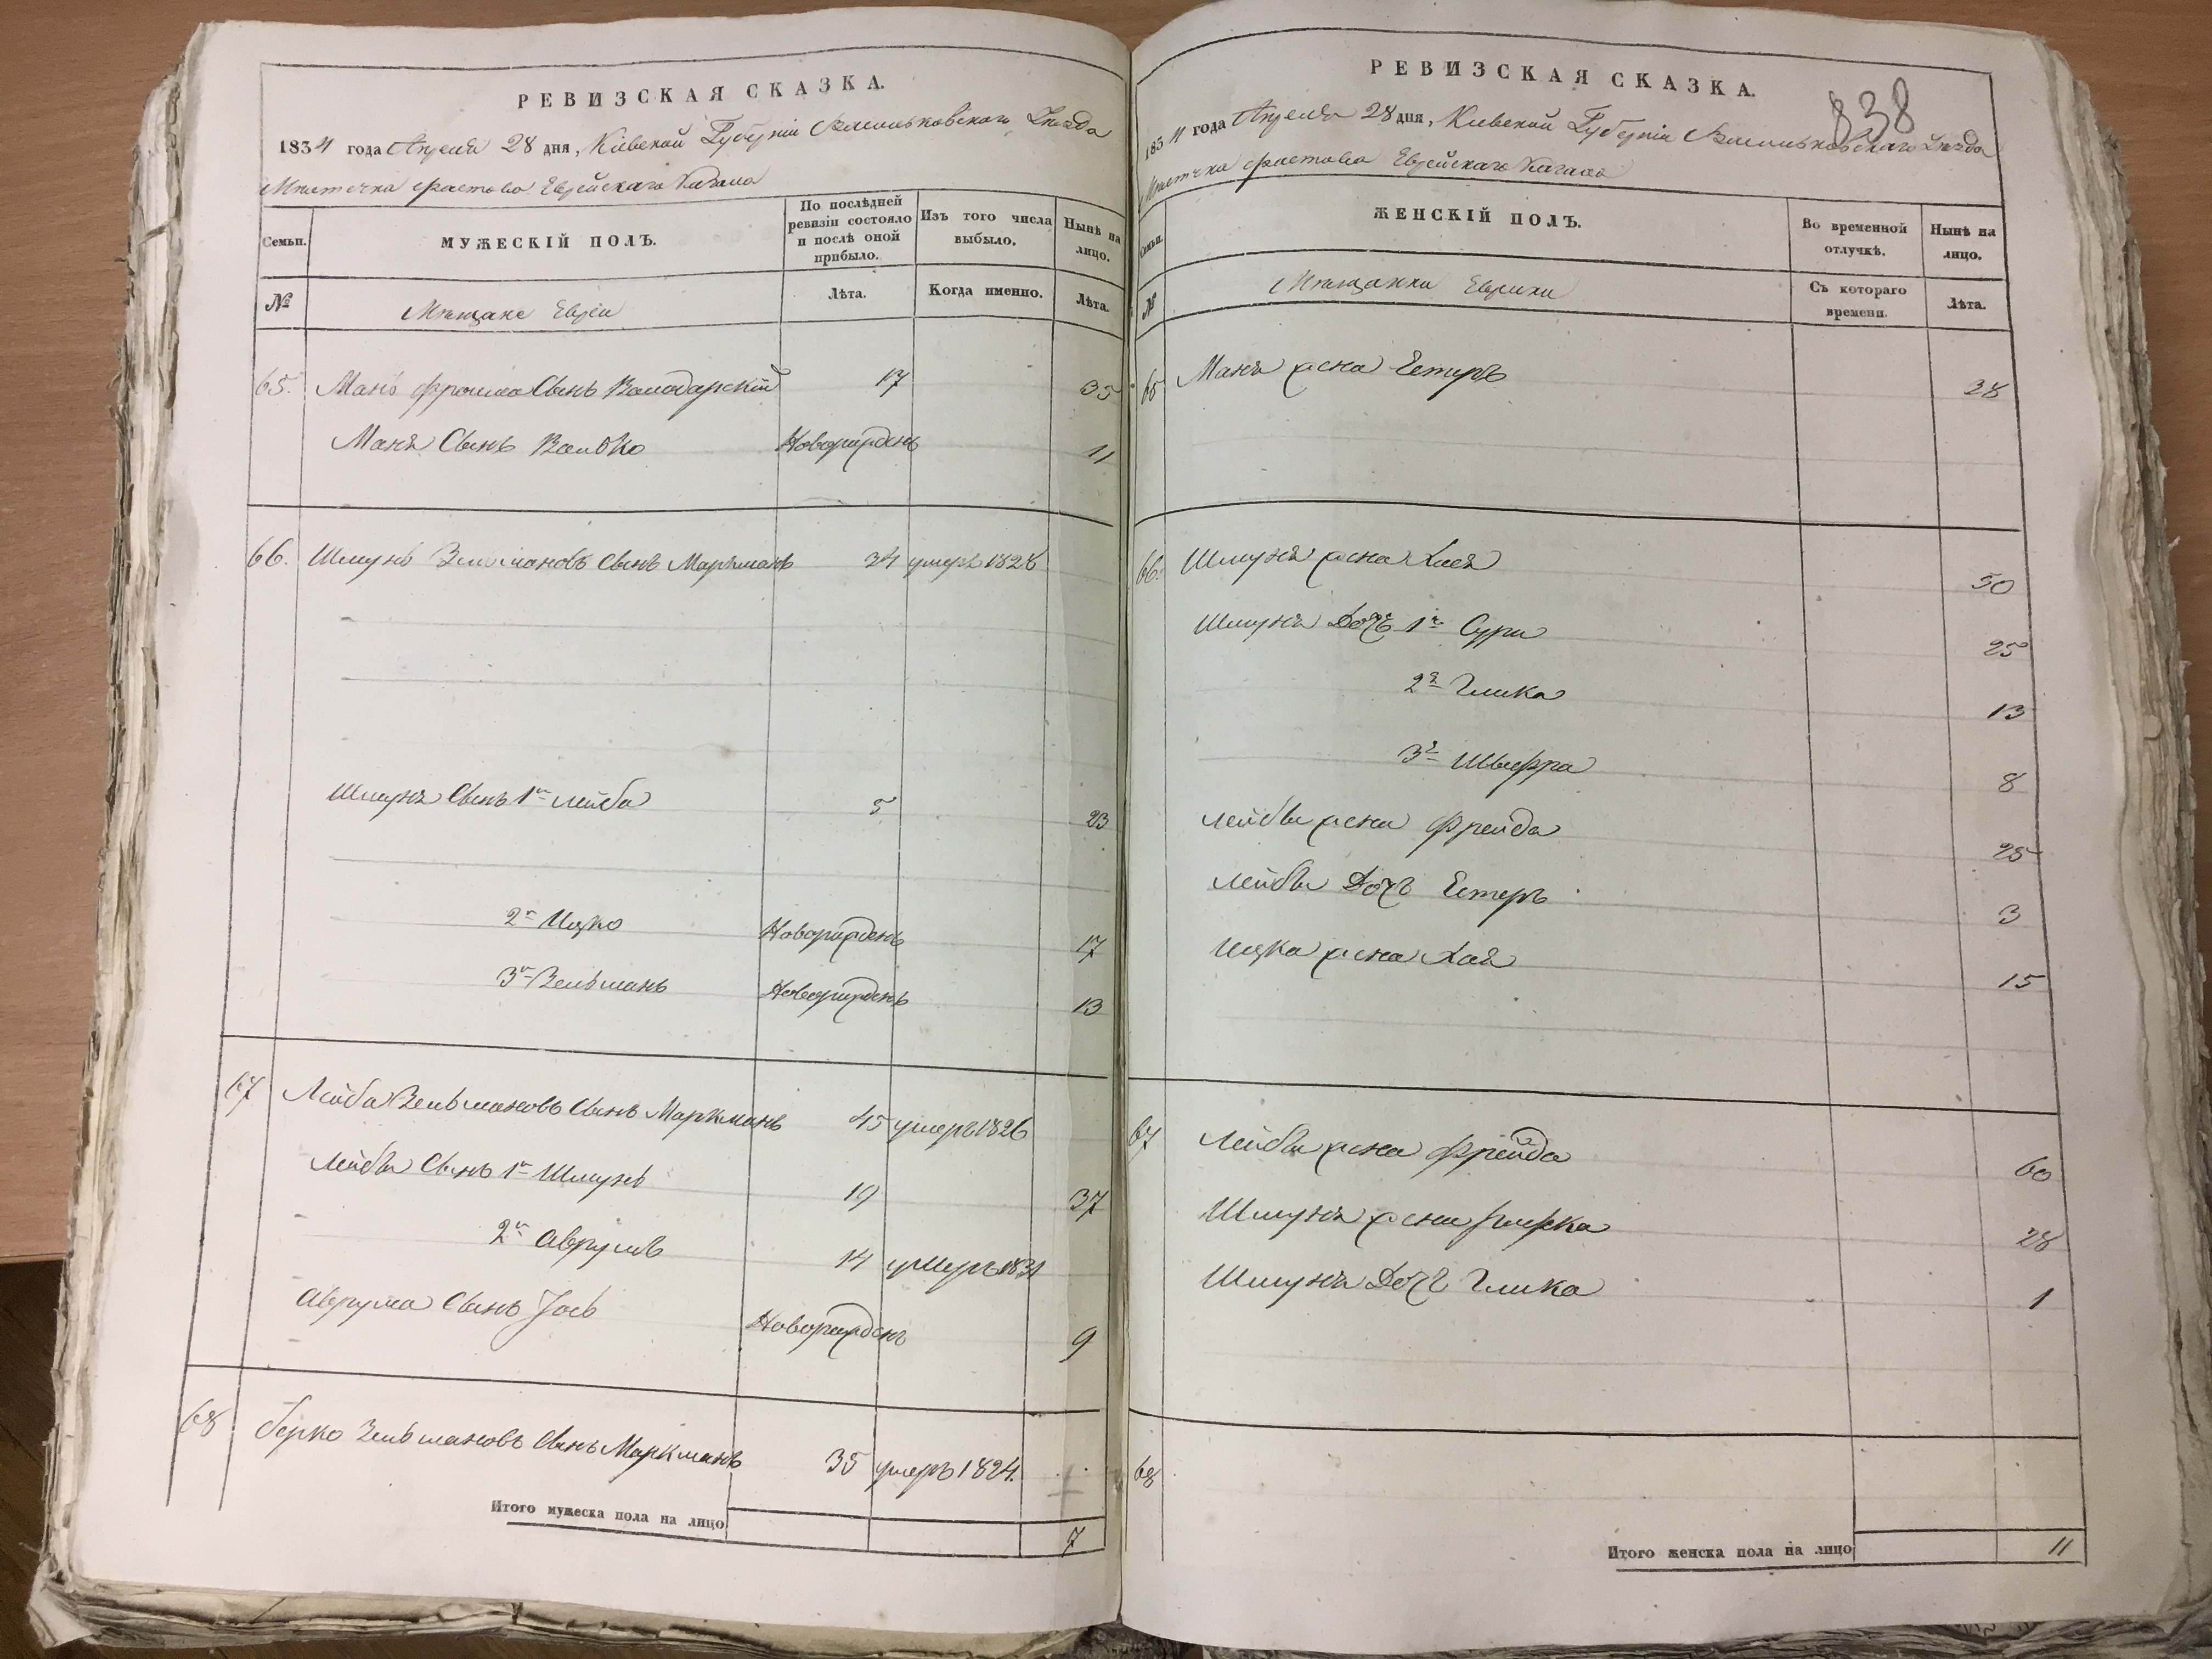 РЕВИЗСКАЯ СКАЗКА.
1834 года Апреля 28 дня, Кіевской Губерніи Васильковскаго Уезда
Местечка Фастова Еврейскаго Кагала
Семьи.
МУЖЕСКІЙ ПОЛЪ.
По послѣдней ревизіи состояло и послѣ оной прибыло.
Изъ того числа выбыло.
Нынѣ на лицо.
№
Мещане Евреи
Лѣта.
Когда именно.
Лѣта.
65. Манъ Фроимовъ Сынъ Володарскій 17 35
Маня Сынъ Волько Новорожденъ 11
66. Шмунь Зельмановъ Сынъ Маркманъ 34 умеръ 1828
Шмуня Сынъ 1й Лейба 5 23
2й Ицко Новорожденъ 17
3й Зельманъ Новорожденъ 13
67 Лейба Зельмановъ Сынъ Маркманъ 45 умеръ 1826
Лейбы Сынъ 1й Шмунь 19 37
2й Аврумъ 14 умеръ 1831
Аврума Сынъ Іось Новорожденъ 9
68 Берко Зельмановъ Сынъ Маркманъ 35 умеръ 1824.
Итого мужеска пола на лицо 7
РЕВИЗСКАЯ СКАЗКА.
838
1834 года Апреля 28 дня, Кіевской Губерніи Васильковскаго Уезда
Местечка Фастова Еврейскаго Кагала
Семьи.
ЖЕНСКІЙ ПОЛЪ.
Во временной отлучкѣ.
Нынѣ на лицо.
№
Мещанки Еврейки
Съ котораго времени.
Лѣта.
65 Маня жена Естеръ 28
66. Шмуня жена Хая 50
Шмуня Дочь 1я Сура 25
2я Глика 13
3я Шифра 8
Лейбы жена Фрейда 25
Лейбы Дочь Естеръ 3
Ицка жена Хая 15
67 Лейбы жена Фрейда 60
Шмуня жена Рифка 28
Шмуня Дочь Глика 1
68
Итого женска пола на лицо 11